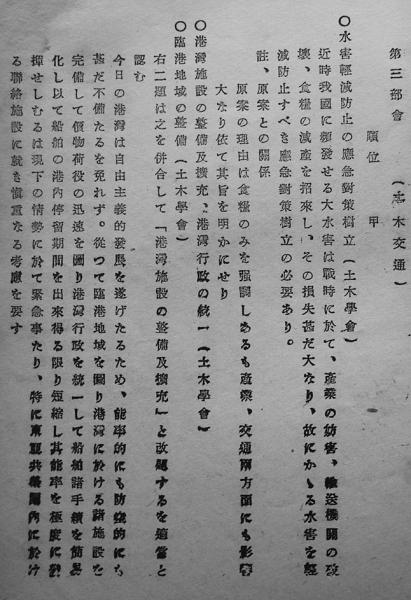 第三部會　（土木交通）
順位　甲
〇水害輕減防止の應急對策樹立（土木學會）
近時我國に頻發せる大水害は戰時に於て、產業の妨害、輸送機關の破
壞、食糧の減產を招來し、その損失甚だ大なり、故にかゝる水害を輕
減防止すべき應急對策樹立の必要あり。
註、原案との關係
原案の理由は食糧のみを强調しあるも產業、交通兩方面にも影響
大なり依て其旨を明かにせり
〇港灣施設の整備及擴充、港灣行政の統一（土木學會）
〇臨港地域の整備（土木學會）
右二題は之を併合して「港灣施設の整備及擴充」と改題するを適當と
認む
今日の港灣は自由主義的發展を遂げたるため、能率的にも防空的にも
甚だ不備たるを免れず。從つて臨港地域を圖り港灣に於ける諸施設を
完備して貨物荷役の迅速を圖り港灣行政を統一して船舶諸手續を簡易
化し以て船舶の港內停留期間を出來得る限り短縮し其能率を極度に發
揮せしむるは現下の情勢に於て緊急事たり、特に東亞共榮圈內に於け
る聯絡施設に就き愼重なる考慮を要す